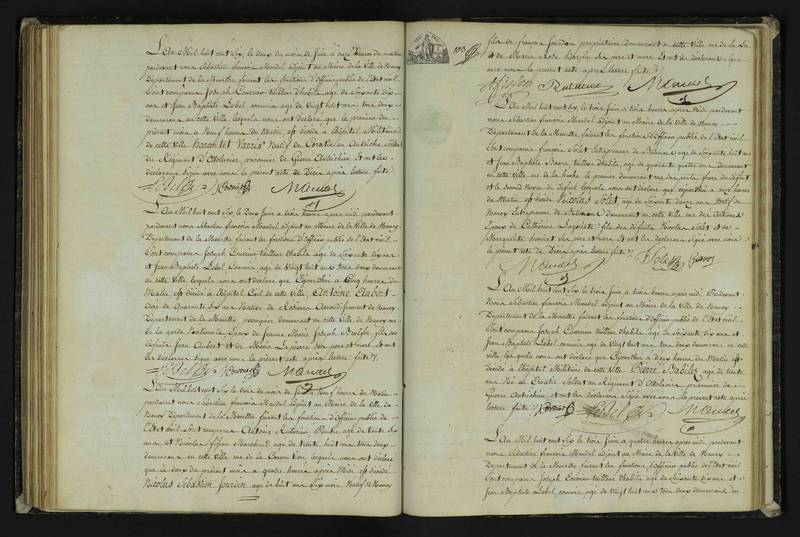 L'An Mil huit cent Six, le deux du mois de Juin à onze heures du matin
pardevant nous Sébastien françois Mandel adjoint au Maire de la Ville de Nancy
Département de la Meurthe faisant les fonctions d'officier public de l'Etat civil
Sont comparus Joseph Couvreur tailleur d'habits agé de Soixante dix
ans et Jean Baptiste Lebel commis agé de Vingt huit ans tous deux
demeurans en cette Ville lesquels nous ont déclaré que le premier du
présent mois a neuf heures du Matin est décédé à l'hôpital Militaire
de cette Ville natif de Croatie en Autriche
du Régiment d'Ottohainer prisonnier de Guerre Autrichien Et ont les
déclarans signé avec nous le présent acte après lecture faite
Mandel
L'An Mil huit cent Six, le Deux Juin à trois heures après midi pardevant
nous Sébastien françois Mandel adjoint au Maire de la Ville de Nancy
Département de la Meurthe faisant les fonctions d'officier public de l'Etat civil
Sont comparus Joseph Couvreur tailleur d'habits agé de Soixante dix ans
et Jean Baptiste Lebel Commis agé de Vingt huit ans tous deux demeurans
en cette Ville, lesquels nous ont déclaré que a Cinq heures du
Matin est décédé à l'hôpital Civil de cette Ville, Antoine Aubert
agé de Quarante Six ans Natif de Arrondissement de Nancy
Département de la Meurthe perruquier demeurant en cette Ville de Nancy
de la garde Nationale Epoux de Jeanne Marie Joseph fils des
défunts Jean Aubert et de Marie Lapierre ses père et mère Et ont
les déclarans signé avec nous le présent acte après lecture faite
Mandel
L'An Mil huit cent Six le trois du mois de Juin à neuf heures du Matin
pardevant nous Sébastien françois Mandel adjoint au Maire de la Ville de
Nancy Département de la Meurthe faisant les fonctions d'officier public de
l'Etat civil Sont comparus Antoine agé de trente Six
ans et Nicolas Marchand agé de trente huit ans tous deux
demeurans en cette Ville rue de la Convention lesquels nous ont déclaré
que le deux du présent mois a quatre heures après Midi est décédé
Nicolas Sébastien Jourdan agé de huit ans Six mois Natif de Nancy
103
fils de françois Jourdan propriétaire demeurant en cette Ville rue de la
et de Marie Rose ses père et mère Et ont les déclarans signé
avec nous le présent acte après lecture faite
Mandel
L'An Mil huit cent Six le trois Juin à trois heures après Midi pardevant
nous Sébastien françois Mandel adjoint au Maire de la Ville de Nancy
Département de la Meurthe faisant les fonctions d'officier public de l'Etat civil
Sont comparus françois Solet entrepreneur de Bâtimens agé de Soixante huit ans
et Jean Baptiste tailleur d'habits, agé de quarante quatre ans demeurant
en cette Ville rue de la hache le premier demeurant rue des frère du défunt
et le second Voisin du défunt lesquels nous ont déclaré que à onze heures
du Matin est décédé Nicolas Solet agé de Soixante douze ans Natif de
Nancy Entrepreneur de Bâtimens demeurant en cette Ville rue des Artisans
Epoux de Catherine fils des défunts Nicolas Solet et de
Marguerite ses père et mère et ont les déclarans signé avec nous
le présent acte après lecture faite
Mandel Solet
L'An Mil huit cent Six le trois Juin à trois heures après midi Pardevant
Nous Sébastien françois Mandel adjoint au Maire de la Ville de Nancy
Département de la Meurthe faisant les fonctions d'officier public de l'Etat civil
Sont comparus Joseph Couvreur tailleur d'habits agé de Soixante dix ans et
Jean Baptiste Lebel Commis agé de Vingt huit ans tous deux demeurans en cette
Ville lesquels nous ont déclaré que à deux heures du Matin est
décédé à l'hôpital Militaire de cette Ville, Pierre agé de trente
ans Né en Croatie Soldat au Régiment d'Ottohainer prisonnier de
Guerre Autrichien, et ont les déclarans signé avec nous le présent acte après
lecture faite
Mandel
L'An Mil huit cent Six le trois Juin à quatre heures après midi pardevant
nous Sébastien françois Mandel adjoint au Maire de la Ville de Nancy
Département de la Meurthe faisant les fonctions d'officier public de l'Etat civil
Sont comparus Joseph Couvreur tailleur d'habits agé de Soixante dix ans et
Jean Baptiste Lebel, commis agé de Vingt huit ans tous deux demeurans en